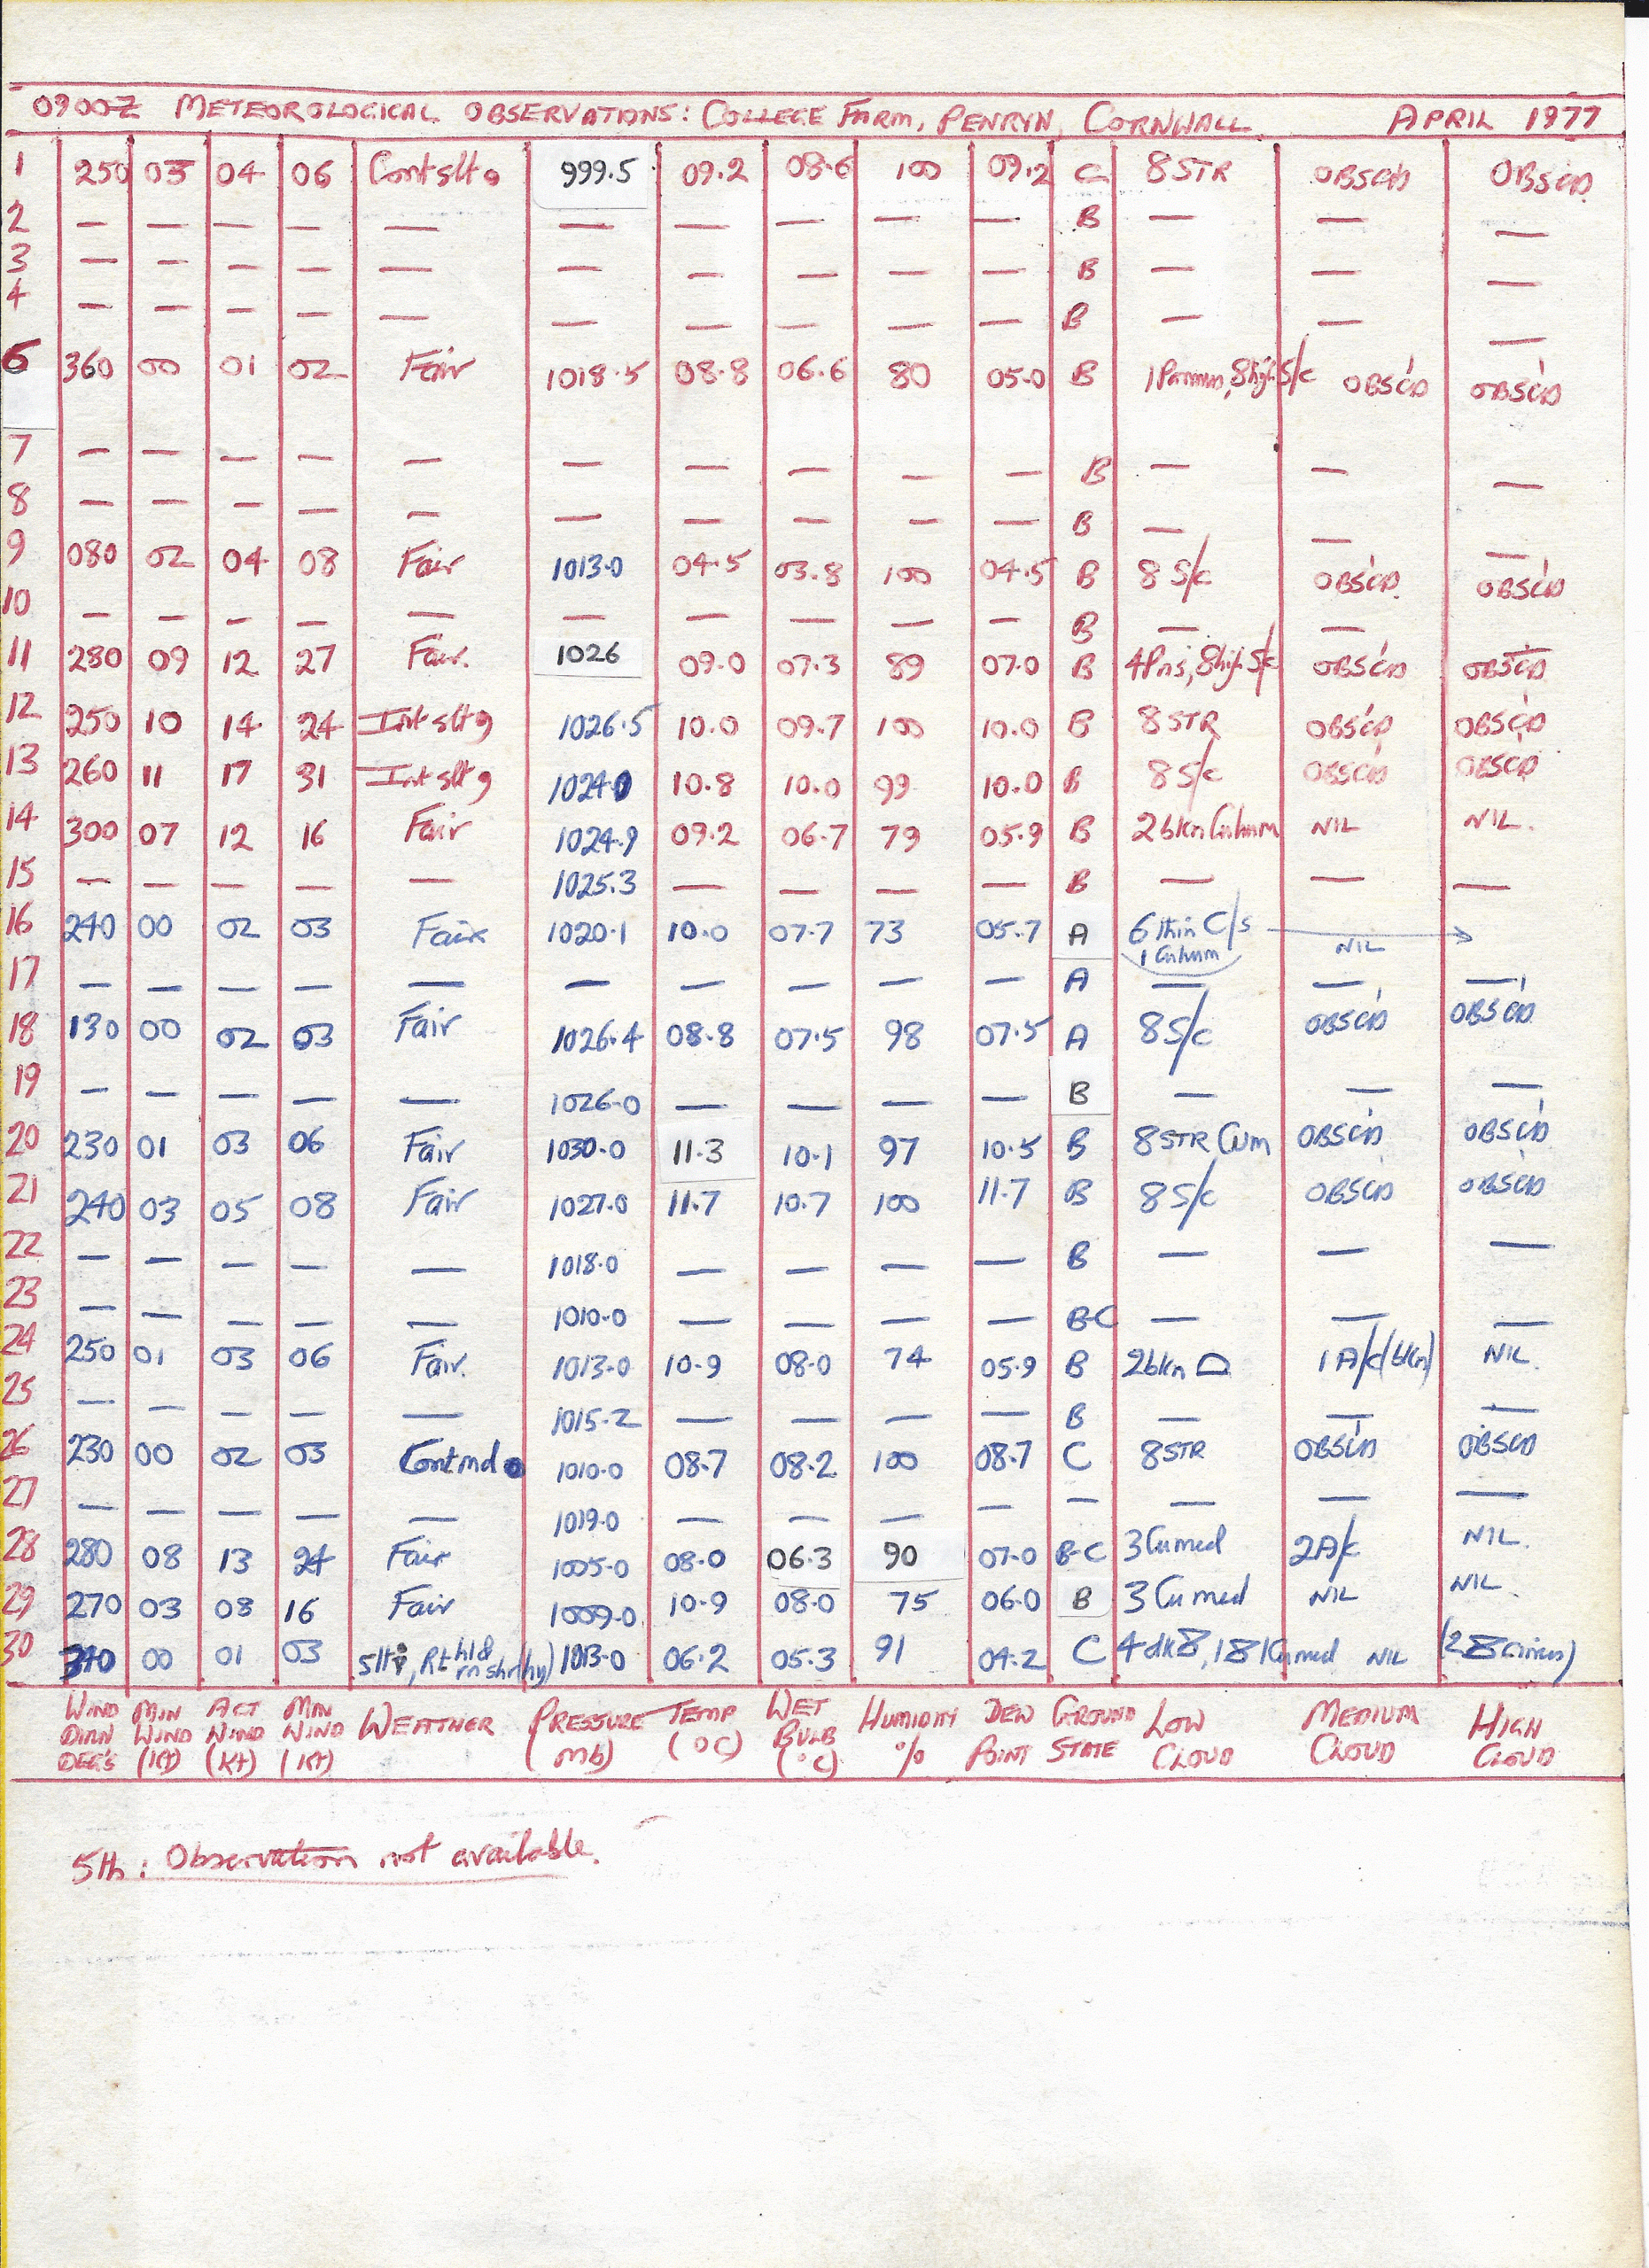 0900Z METEOROLOGICAL OBSERVATIONS: COLLEGE FARM, PENRYN, CORNWALL. APRIL 1977
1 250 03 04 06 Cont slt 999.5 09.2 08.6 100 09.2 C 8 STR OBSC'D OBSC'D
2 — — — — — — — — — — B — — —
3 — — — — — — — — — — B — — —
4 — — — — — — — — — — B — — —
6 360 00 01 02 Fair 1018.5 08.8 06.6 80 05.0 B 8 high S/c OBSC'D OBSC'D
7 — — — — — — — — — — B — — —
8 — — — — — — — — — — B — — —
9 080 02 04 08 Fair 1013.0 04.5 03.8 100 04.5 B 8 S/c OBSC'D OBSC'D
10 — — — — — — — — — — B — — —
11 280 09 12 27 Fair. 1026 09.0 07.3 89 07.0 B 8 high S/c OBSC'D OBSC'D
12 250 10 14 24 Int slt 1026.5 10.0 09.7 100 10.0 B 8 STR OBSC'D OBSC'D
13 260 11 17 31 Int slt 1024.0 10.8 10.0 99 10.0 B 8 S/c OBSC'D OBSC'D
14 300 07 12 16 Fair 1024.9 09.2 06.7 79 05.9 B 2 bkn Cu hum NIL NIL.
15 — — — — — 1025.3 — — — — B — — —
16 240 00 02 03 Fair 1020.1 10.0 07.7 73 05.7 A 6 thin C/s NIL
1 Cu hum
17 — — — — — — — — — — A — — —
18 130 00 02 03 Fair 1026.4 08.8 07.5 98 07.5 A 8 S/c OBSC'D OBSC'D
19 — — — — — 1026.0 — — — — B — — —
20 230 01 03 06 Fair 1030.0 11.3 10.1 97 10.5 B 8 STR CUM OBSC'D OBSC'D
21 240 03 05 08 Fair 1027.0 11.7 10.7 100 11.7 B 8 S/c OBSC'D OBSC'D
22 — — — — — 1018.0 — — — — B — — —
23 — — — — — 1010.0 — — — — B-C — — —
24 250 01 03 06 Fair. 1013.0 10.9 08.0 74 05.9 B 2 bkn 1 A/c (bkn) NIL.
25 — — — — — 1015.2 — — — — B — — —
26 230 00 02 03 Cont md 1010.0 08.7 08.2 100 08.7 C 8 STR OBSC'D OBSC'D
27 — — — — — 1019.0 — — — — — — — —
28 280 08 13 24 Fair 1005.0 08.0 06.3 90 07.0 B-C 3 Cu med 2 A/c NIL.
29 270 03 08 16 Fair 1009.0 10.9 08.0 75 06.0 B 3 Cu med NIL NIL.
30 340 00 01 03 1013.0 06.2 05.3 91 04.2 C NIL
WIND DIRN DEG'S MIN WIND (Kt) ACT WIND (Kt) MAX WIND (Kt) WEATHER PRESSURE (mb) TEMP (°C) WET BULB (°C) HUMIDITY % DEW POINT GROUND STATE LOW CLOUD MEDIUM CLOUD HIGH CLOUD
5th: Observation not available.